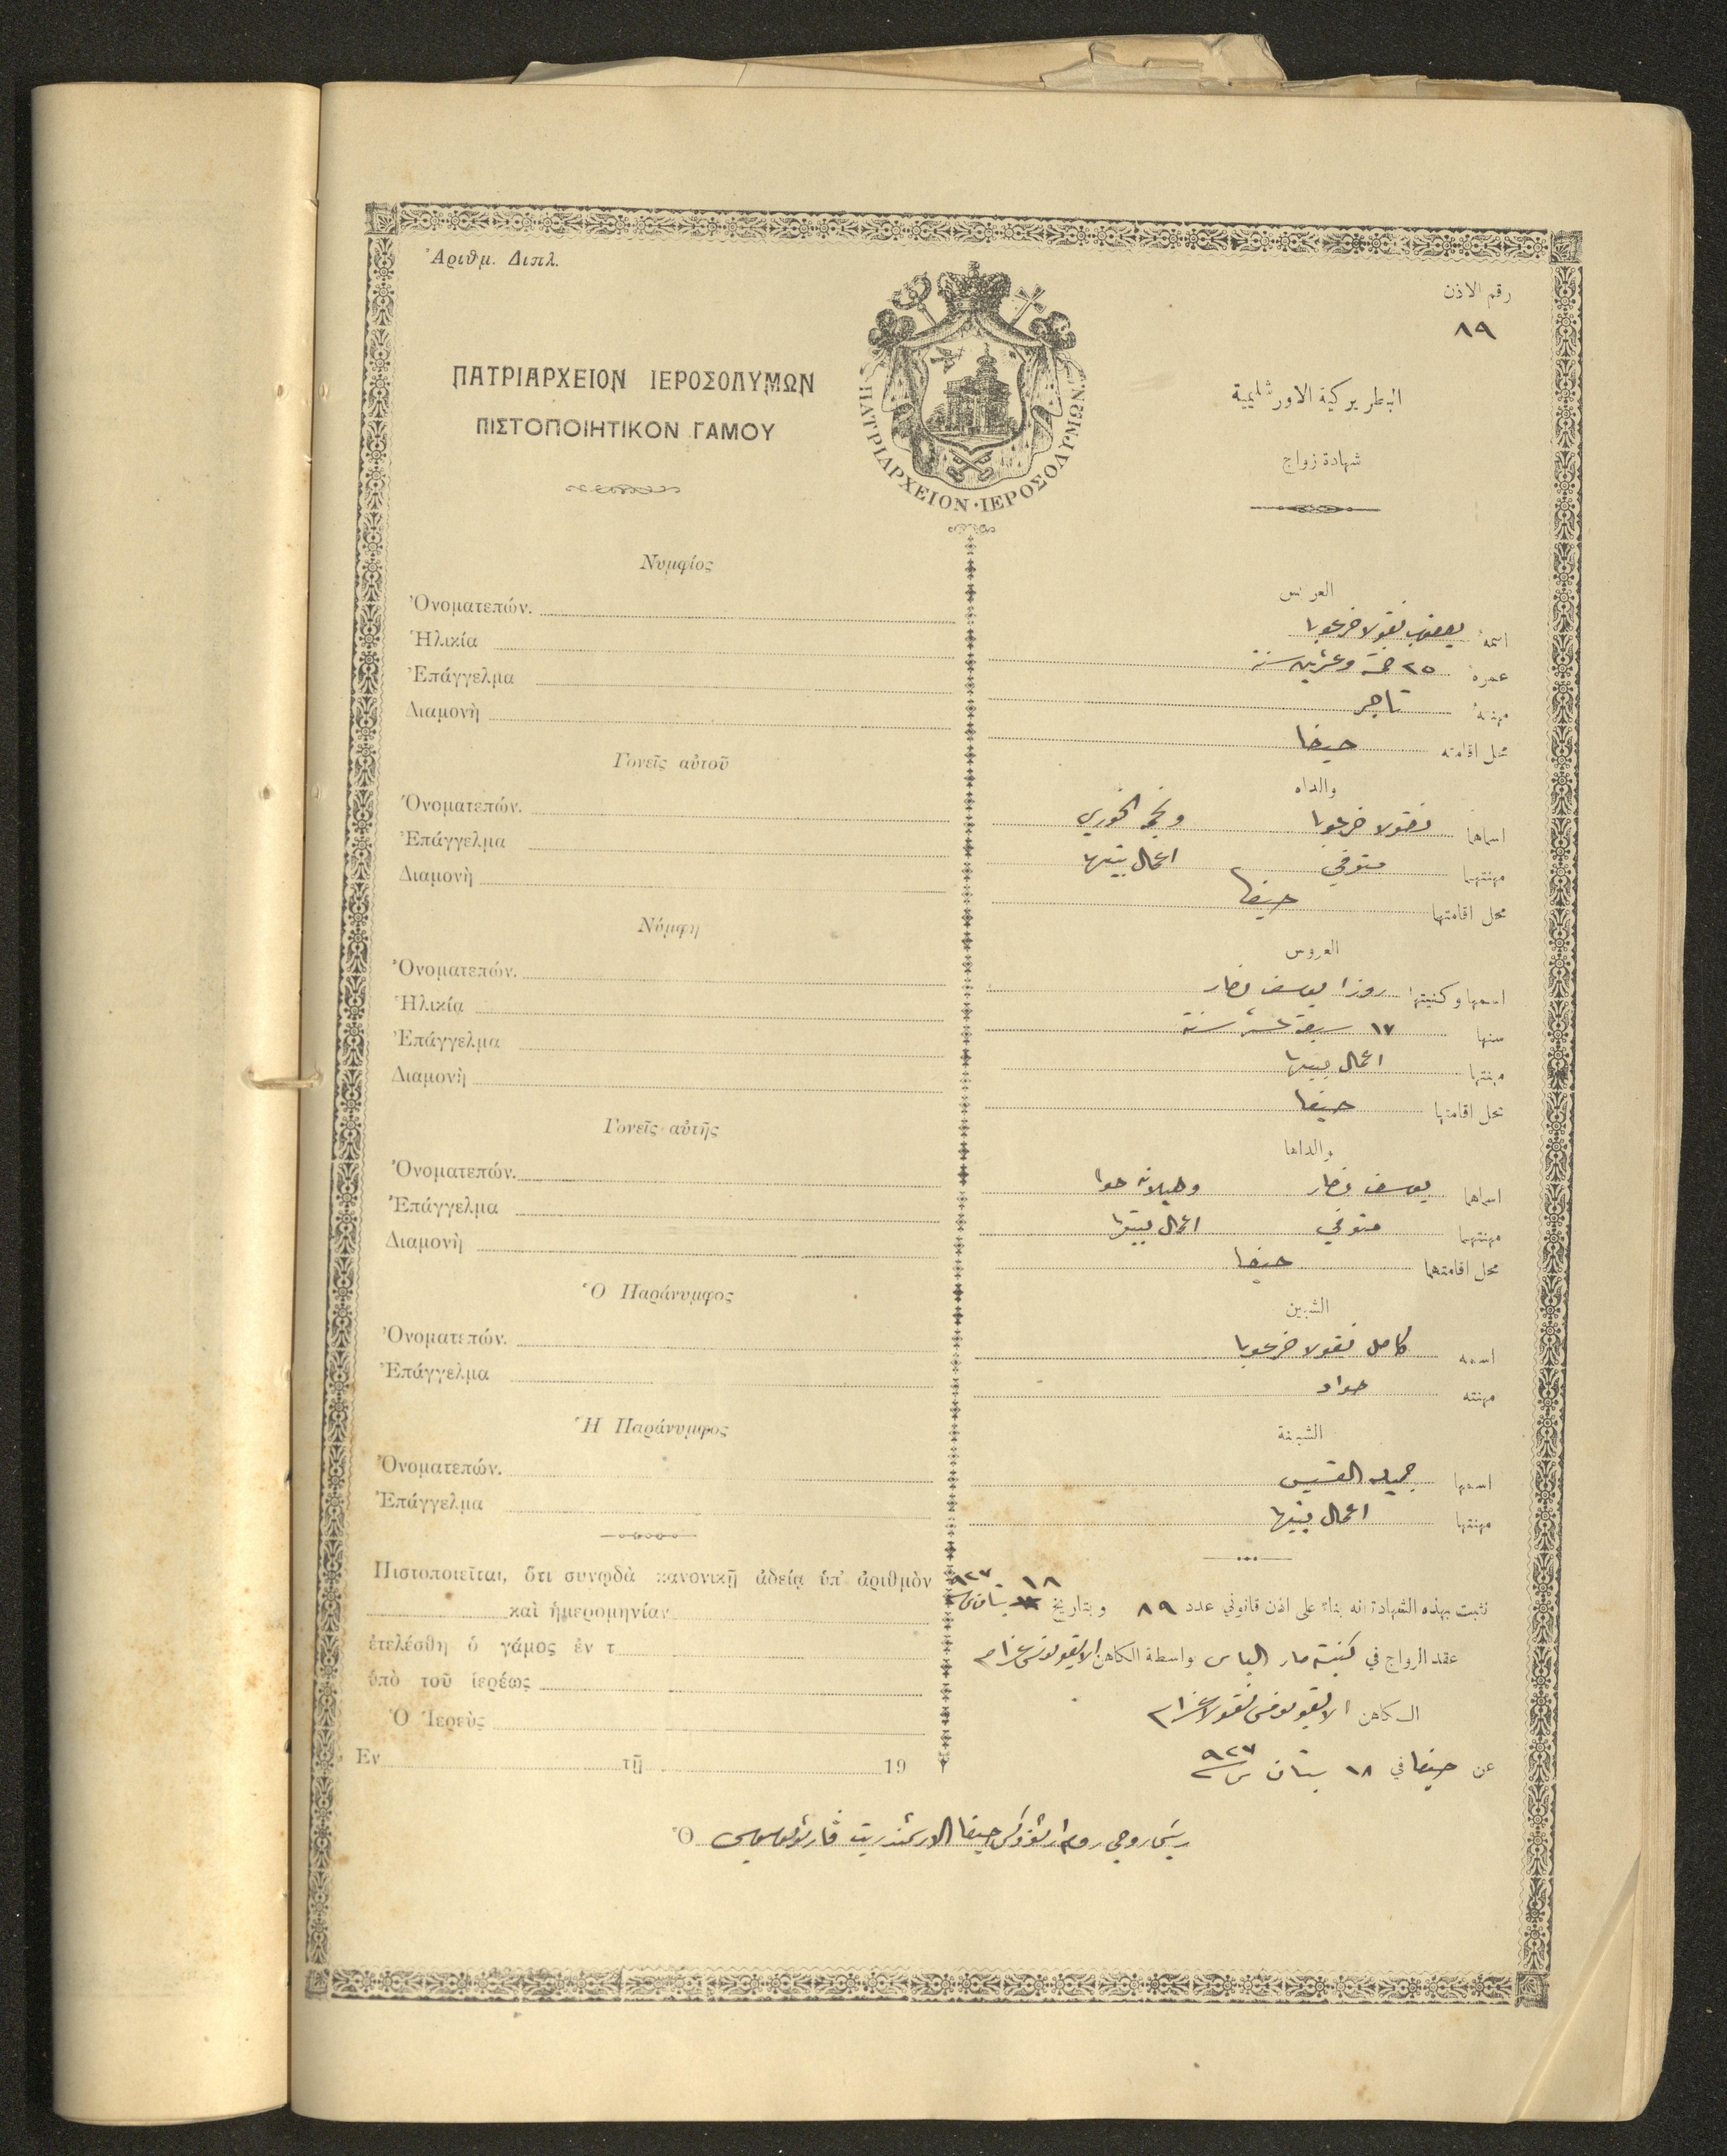 Ἀριθμ. Διπλ.
رقم الاذن
٨٩
ΠΑΤΡΙΑΡΧΕΙΟΝ ΙΕΡΟΣΟΛΥΜΩΝ
ΠΙΣΤΟΠΟΙΗΤΙΚΟΝ ΓΑΜΟΥ
ΠΑΤΡΙΑΡΧΕΙΟΝ·ΙΕΡΟΣΟΛΥΜΩΝ
البطريركية الاورشليمية
شهادة زواج
Νυμφίος
Ὀνοματεπών.
Ἡλικία
Ἐπάγγελμα
Διαμονὴ
Γονεῖς αὐτοῦ
Ὀνοματεπών.
Ἐπάγγελμα
Διαμονὴ
Νύμφη
Ὀνοματεπών.
Ἡλικία
Ἐπάγγελμα
Διαμονὴ
Γονεῖς αὐτῆς
Ὀνοματεπών.
Ἐπάγγελμα
Διαμονὴ
Ὁ Παράνυμφος
Ὀνοματεπών.
Ἐπάγγελμα
Ἡ Παράνυμφος
Ὀνοματεπών.
Ἐπάγγελμα
Πιστοποιεῖται, ὅτι συνῳδὰ κανονικῇ ἀδείᾳ ὑπ' ἀριθμὸν
καὶ ἡμερομηνίαν
ἐτελέσθη ὁ γάμος ἐν τ
ὑπὸ τοῦ ἱερέως
Ὁ Ἱερεὺς
Ἐν τῇ 19
العريس
اسمه يعقوب نقولا
عمره ٢٥ خمسة وعشرين سنة
مهنته تاجر
محل اقامته حيفا
والداه
اسماهما نقولا الخوري
مهنتهما متوفي اعمال بيتها
محل اقامتهما حيفا
العروس
اسمها وكنيتها روزا يوسف نصار
سنها ١٧ سبعة عشر سنة
مهنتها اعمال بيتها
محل اقامتها حيفا
والداها
اسماهما يوسف نصار وهيلانه حوا
مهنتهما متوفي اعمال بيتها
محل اقامتهما حيفا
الشبين
اسمه كامل نقولا
مهنته
الشبينة
اسمها جميله القسيس
مهنتها اعمال بيتها
نثبت بهذه الشهادة انه بناء على اذن قانوني عدد ٨٩ وبتاريخ ١٨ نيسان ٩٢٧
عقد الزواج في كنيسة مار الياس بواسطة الكاهن الايقونومس عزام
الكاهن الايقونومس نقولا عزام
عن حيفا في ١٨ نيسان سنة ٩٢٧
Ὁ رئيس روحي روم ارثوذكس حيفا الارشمندريت